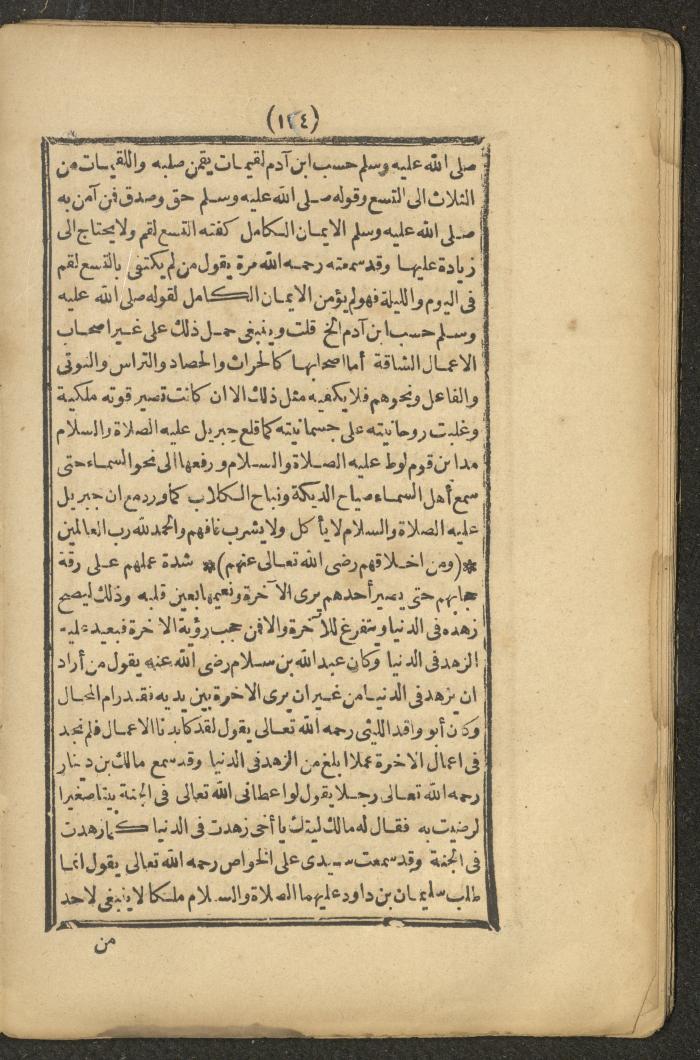 (١٢٤)
صلى الله عليه وسلم حسب ابن آدم لقيمات يقمن صلبه واللقيمات من
الثلاث الى التسع وقوله صلى الله عليه وسلم حق وصدق فن آمن به
صلى الله عليه وسلم الايمان الكامل كفته التسع لقم ولا يحتاج الى
زيادة عليها وقد سمعته رحمه الله مرة يقول من لم يكتفى بالتسع لقم
فى اليوم والليلة فهو لم يؤمن الايمان الكامل لقوله صلى الله عليه
وسلم حسب ابن آدم الخ قلت وينبغى حمل ذلك على غير اصحاب
الاعمال الشاقة أما اصحابها كالحراث والحصاد والتراس والنوتى
والفاعل ونحوهم فلا يكفيه مثل ذلك الا ان كانت تصير قوته ملكية
وغلبت روحانيته على جسمانيته كما قلع جبريل عليه الصلاة والسلام
مداين قوم لوط عليه الصلاة والسلام ورفعها الى نحو السماء حتى
سمع أهل السماء صياح الديكة ونباح الكلاب كما ورد مع ان جبريل
عليه الصلاة والسلام لا يأكل ولا يشرب فافهم والحمد لله رب العالمين
*(ومن اخلاقهم رضى الله تعالى عنهم)* شدة عملهم على رقة
حجابهم حتى يصير أحدهم يرى الآخرة ونعيمها بعين قلبه وذلك ليصح
زهده فى الدنيا ويتفرغ للآخرة والافن حجب رؤية الآخرة فبعيد عليه
الزهد فى الدنيا وكان عبد الله بن سلام رضى الله عنه يقول من أراد
ان يزهد فى الدنيا من غير ان يرى الآخرة بين يديه فقد رام المحال
وكان أبو واقد الليثى رحمه الله تعالى يقول لقد كابدنا الاعمال فلم نجد
فى اعمال الآخرة عملا ابلغ من الزهد فى الدنيا وقد سمع مالك بن دينار
رحمه الله تعالى رجلا يقول لو اعطانى الله تعالى فى الجنة بيتا صغيرا
لرضيت به فقال له مالك ليتك يا أخى زهدت فى الدنيا كما زهدت
فى الجنة وقد سمعت سيدى على الخواص رحمه الله تعالى يقول انما
طلب سليمان بن داود عليهما الصلاة والسلام ملكا لا ينبغى لاحد
من